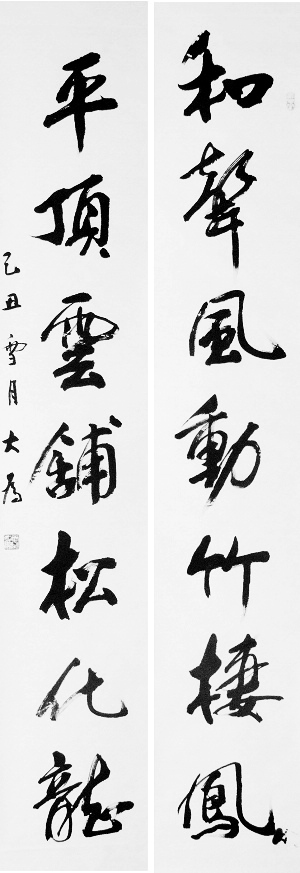 和聲風動竹棲鳳
平頂雲鋪松化龍
己丑雪月大為